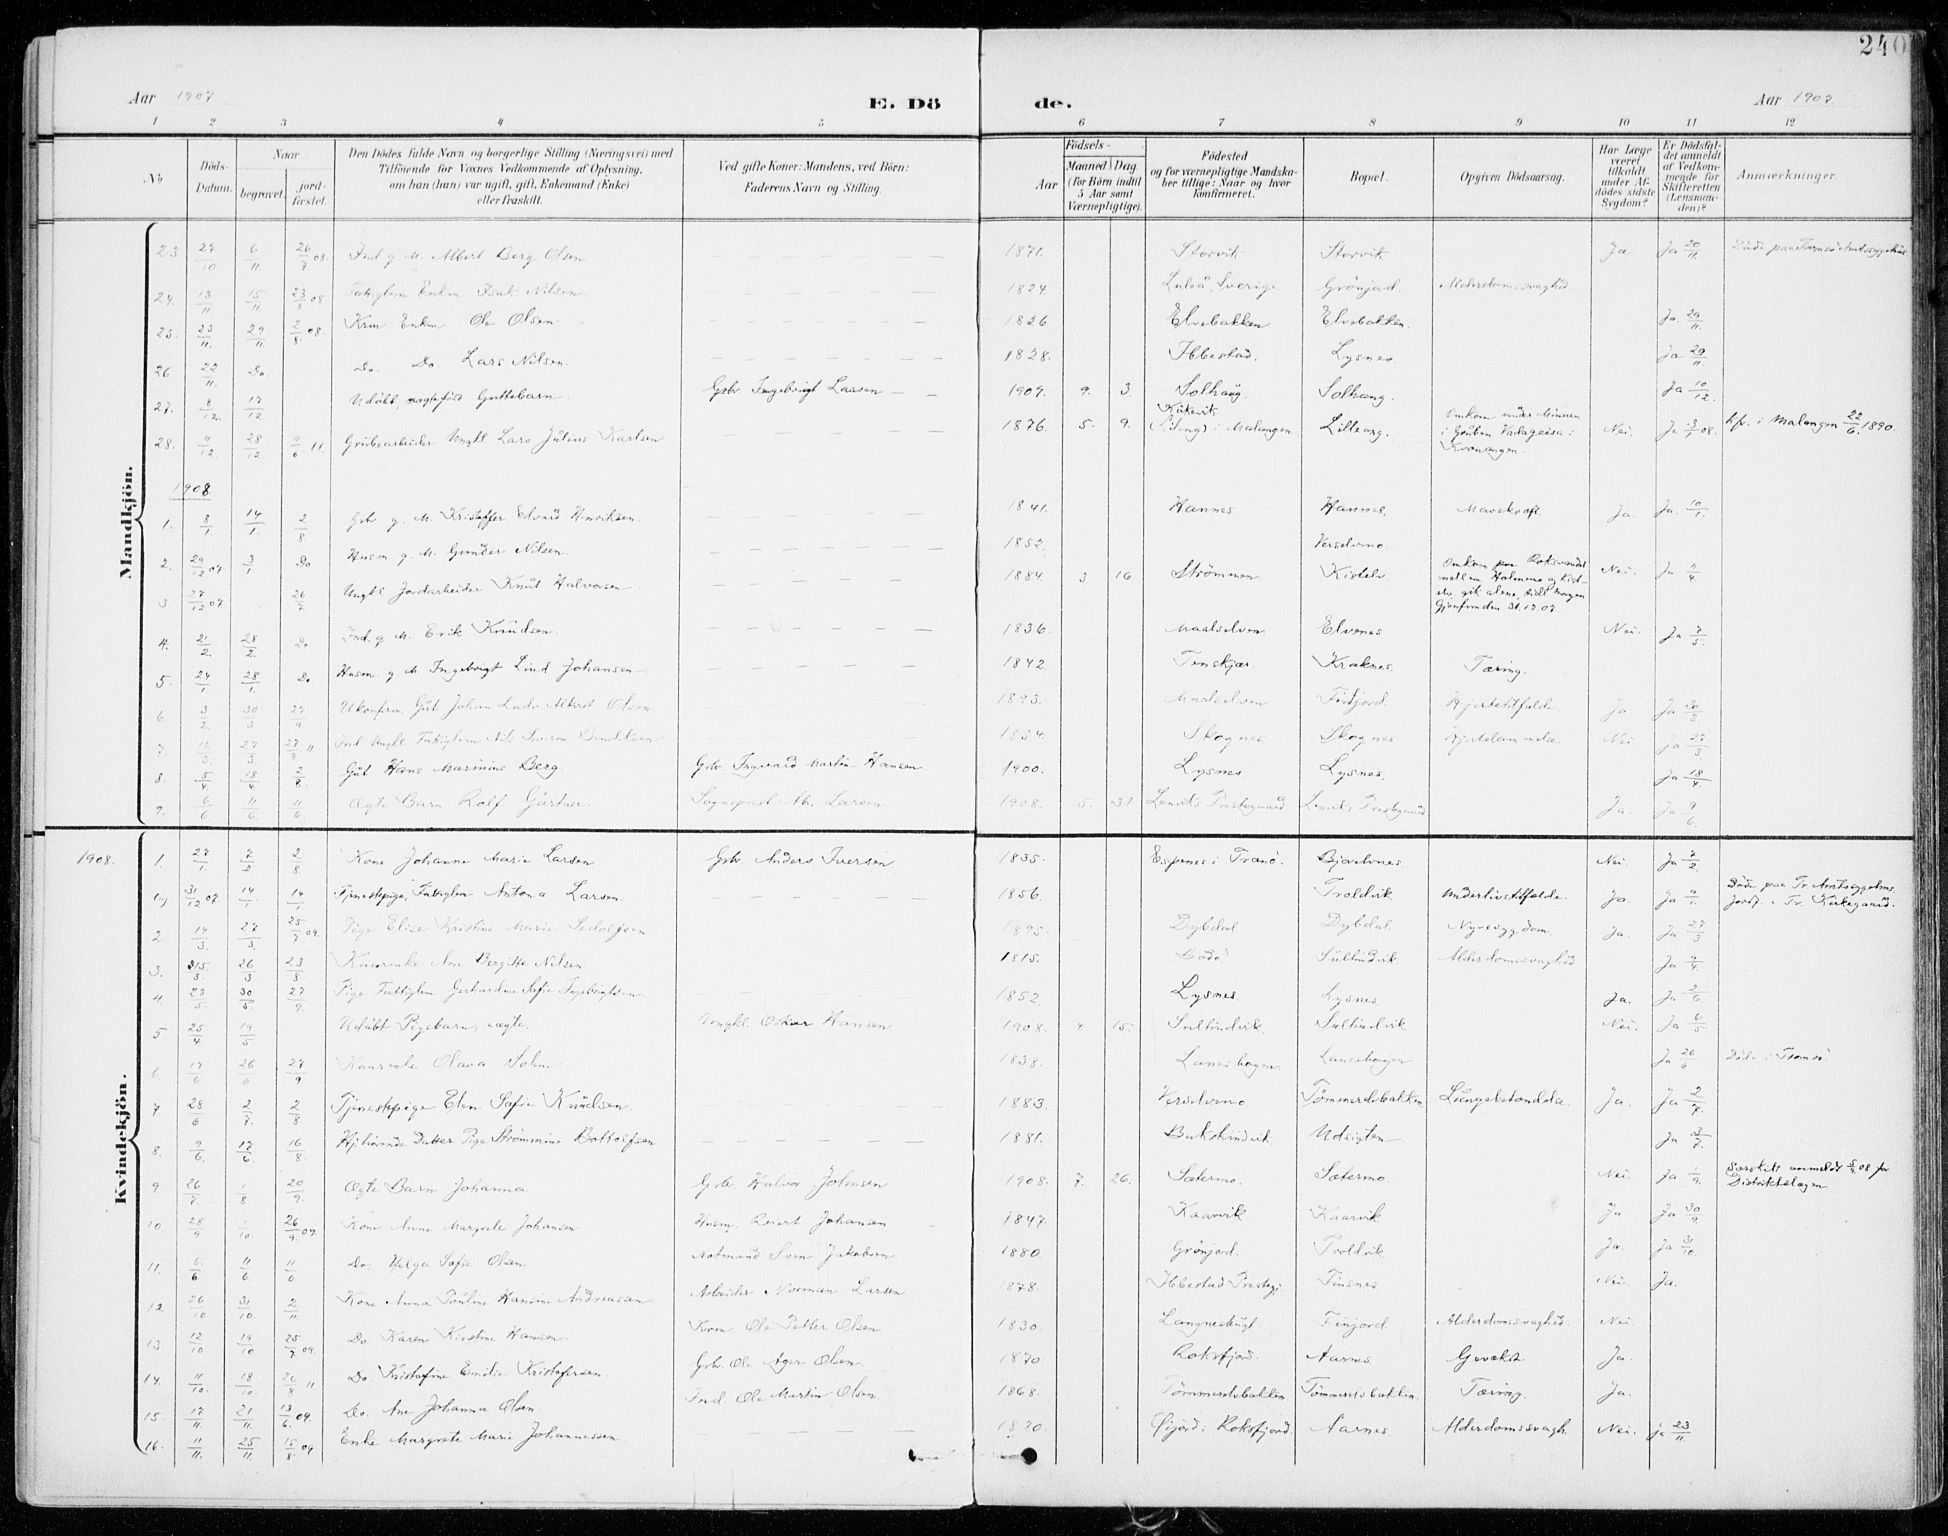 240
Aar 1907
E. Dö
de.
Aar 1907.
1 2 3 4 5 6 7 8 9 10 11 12
№
Döds-Datum.
Naar
begravet.
jord-fæstet.
Den Dödes fulde Navn og borgerlige Stilling (Næringsvei) med
Tilföiende for Voxnes Vedkommende af Oplysning,
om han (hun) var ugift, gift, Enkemand (Enke)
eller fraskilt.
Ved gifte Koner: Mandens, ved Börn:
Faderens Navn og Stilling.
Födsels-
Aar
Maaned
Dag
(for Börn indtil
5 Aar samt
Værnepligtige).
Födested
og for værnepligtige Mandska-
ber tillige: Naar og hvor
konfirmeret.
Bopæl.
Opgiven Dödsaarsag.
Har Læge
været
tilkaldt
under Af-
dödes sidste
Sygdom?
Er Dödsfal-
det anmeldt
af Vedkom-
mende for
Skifteretten
(Lensman-
den)?
Anmærkninger.
Mandkjön.
23 27/10 6/11 26/7 08 Ind. g. M. Albert Berg Olsen 1871. Storvik. Storvik Ja Ja 20/11. Döde paa Tromsö Amtssygehus
24. 13/11. 15/11 23/8 08 Enkm. Isak Nilsen. 1824 Luleå, Sverige Grönjord Alderdomssvaghed.
25. 23/11. 29/11 2/8 08. Krm. Enkm Ole Olsen. 1826 Elvebakken Elvebakken. Ja 29/11.
26 22/11. Do. Do. Do Lars Nilsen. 1828. Ibbestad. Lysnes Ja 29/11
27. 8/12. 17/12 Udöbt, uægtefödt Guttebarn. Gbr. Ingebrigt Larsen 1907. 9. 3. Solhaug. Solhaug. Ja 10/12.
28. 11/12. 28/12. 11/6 11. Grubearbeider Ungkl Lars Julius Karlsen 1876. 5. 9. i Malangen. Lilleørg. Omkom under Minsen i Gruben i Kvænangen. Nei. Ja 3/1 08. kfr. i Malangen 22/6. 1890.
1908
1. 8/1 14/1. 2/8 Gbr. g. M. Kristoffer Edvard Henriksen. 1841. Hannes. Hannes. Mavekræft. Ja. Ja. 10/1.
2. 29/12 07 3/1. Do Husm. g. M. Gunder Nilsen. 1852. Verselvmo.
3. 27/12 07 26/7. Ungkl Jordarbeider Knut Halvorsen 1884. 3 16 Strömmen Kistelv. Omkom paa Roksvandet mellem Holmmo og Kist-elv, gik alene, Gjenfunden 31.12.07 Nei. Ja 11/4
4. 21/2. 28/2. Do Ind. g. M. Erik Knudsen. 1836. Maalselven Elvenes Nei. Ja 7/5.
5. 24/1 28/1. Do. Husm. g. M. Ingebrigt Lind Johansen 1842 Tenskjær. Kraknes. Tæring.
6. 3/2. 30/3 27/4 Ukonfirm. Gut Johan Ludv. Albert Olsen. 1893. Maalselven Finfjord. Hjertetilfælde. Ja Ja 30/3.
7. 12/3. 27/3 Ind. Ungkl. Fattiglem Nils Bendiksen 1834. Skognes Skognes Hjertelammelse. Nei Ja 27/3
8. 5/4. 18/4. 2/8. Gut Hans Marinius Berg. Gbr. Ingvard Martin Hansen 1900. Lysnes Lysnes. Ja 18/4.
9. 6/6. 11/6. 11/6. Ægte Barn Rolf Gärtner. Sognepræst Larsen 1908. 5. 31 Lenviks Prestegaard Lenviks Prestegaard Ja. Ja 9/6.
Kvindekjön.
1908. 1. 27/1. 7/2 2/8 Kone Johanne Marie Larsen Gbr. Anders Iversen 1835. Espenes i Tranö. Bjorelvnes. Nei. Ja 7/2.
31/12 07. 14/1. 14/1 Tjenestepige, Fattiglem Antona Larsen. 1856. Troldvik. Underlivstilfælde. Ja. Ja Döde paa Tr. Amtssygehus. Jordf. i Tr. Kirkegaard.
2 14/3. 27/3. 25/7 09. Pige Elise Kristine Marie Sedolfsen 1895. Dybdal Dybdal. Nyresygdom Ja. Ja 27/3
3. 15/3. 26/3 23/8 Kaarenke Ane Bergitte Nilsen 1815. Bodö. Sultindvik. Alderdomssvaghed. Ja 7/4.
4. 23/5. 30/5. 27/9. Pige Fattiglem Gerhardine Sofie Ingebrigtsen. 1852. Lysnes. Lysnes. Ja. Ja 2/6
5 25/4 19/5. Udöbt Pigebarn, uægte. Ungkl. Oskar Hansen 1908. 4. 15. Sultindvik. Sultindvik Nei. Ja 6/5
6. 17/6 26/6 27/9 Kaarenke Olava Holm 1838. Lanesbogen Lanesbogen Ja 26/6. Döde i Tromsö
7 28/6 2/7. 2/8 Tjenestepige Elen Sofie Knudsen. 1883. Verselvmo Tömmerelvbakken. Lungebetændelse. Ja. Ja 2/7.
8. 9/6. 17/6. 16/8. Hjelpende Datter Pige Strömmine Bottolfsen 1881. Bukskindvik Udsigten Ja 3/7.
9. 26/7 1/8 20/9. Ægte Barn Johanna Gbr Halvor Johnsen 1908. 7. 26. Sætermo. Sætermo. Nei. Ja 1/9. Særskilt anmeldt 5/9. 08 for Distriktslægen
10. 28/9 1/10 26/9. 09. Kone Anne Margrete Johansen Husm. Reiert Johansen 1847. Kaarvik Kaarvik Ja. Ja 30/9.
11. 6/6 11/6. 11/6 Do. Helga Sofie Olsen Notmand Sven Jakobsen 1880. Grönjord. Troldvik Ja. Ja 31/10.
12. 26/10 31/10. 2/11. Kone Anna Pauline Hansine Andreassen Arbeider Norman Larsen 1878. Ibbestad Prestegj. Finsnes Nei. Ja.
13. 12/10 19/10. 25/7 09. Do. Karen Kirstine Hansen. Krm Ole Petter Olsen 1830. Langnesbugt Finjord Alderdomssvaghed. Nei.
14. 11/10. 18/10. 20/8 11 Do Kristofine Emilie Kristofersen Gbr. Ole Ager Olsen. 1870. Roksfjord. Aarnes. Gevækst. Ja.
15. 17/11. 21/11. 13/6. 09. Do. Ane Johanna Olsen. Ind. Ole Martin Olsen 1868. Tömmerelvbakken Tömmerelvbakken. Tæring. Ja.
16. 11/11. 25/11. 15/8. 09 Enke Margrete Marie Johannessen 1830. i Roksfjord. Aarnes Alderdomssvagh. Nei. ja 23/11.